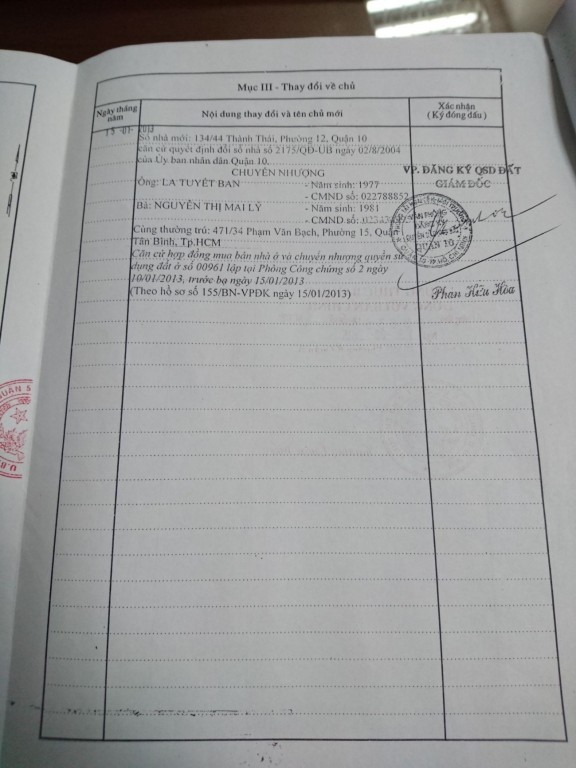 Mục III - Thay đổi về chủ
Ngày tháng năm
Nội dung thay đổi và tên chủ mới
Xác nhận
( Ký đóng dấu )
15 -01-
Số nhà mới: 134/44 Thành Thái, Phường 12, Quận 10
căn cứ quyết định đổi số nhà số 2175/QĐ-UB ngày 02/8/2004
của Ủy ban nhân dân Quận 10.
CHUYỂN NHƯỢNG
VP. ĐĂNG KÝ QSD ĐẤT
GIÁM ĐỐC
Ông: LA TUYẾT BAN - Năm sinh: 1977
- CMND số: 022788852
Bà: NGUYỄN THỊ MAI LÝ - Năm sinh: 1981
- CMND số:
Cùng thường trú: 471/34 Phạm Văn Bạch, Phường 15, Quận
Tân Bình, Tp.HCM
Căn cứ hợp đồng mua bán nhà ở và chuyển nhượng quyền sử
dụng đất ở số 00961 lập tại Phòng Công chứng số 2 ngày
10/01/2013, trước bạ ngày 15/01/2013
(Theo hồ sơ số 155/BN-VPĐK ngày 15/01/2013)
QUẬN 10
Phan Hữu Hòa